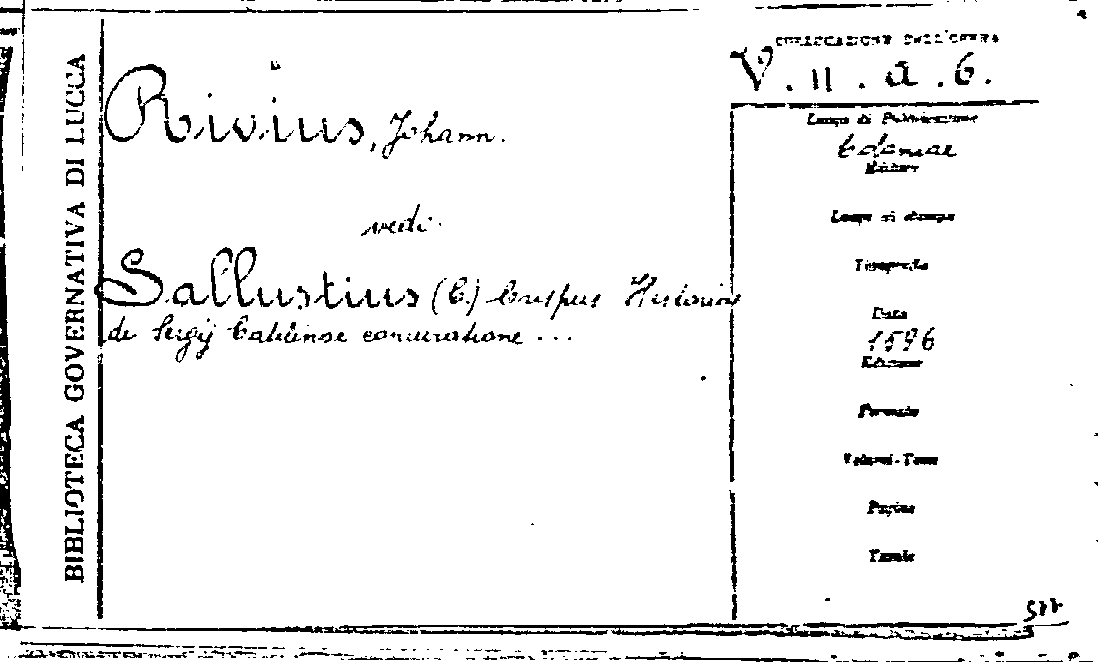 BIBLIOTECA GOVERNATIVA DI LUCCA
Rivius, Johann.
vedi
Sallustius (C.) Crispus Historiae
de Sergij Catilinae coniuratione ...
COLLOCAZIONE DELL'OPERA
V. II. a. 6.
Luogo di Pubblicazione
Coloniae
Editore
Luogo di stampa
Tipografia
Data
1596
Edizione
Formato
Volumi-Tomi
Pagine
Tavole